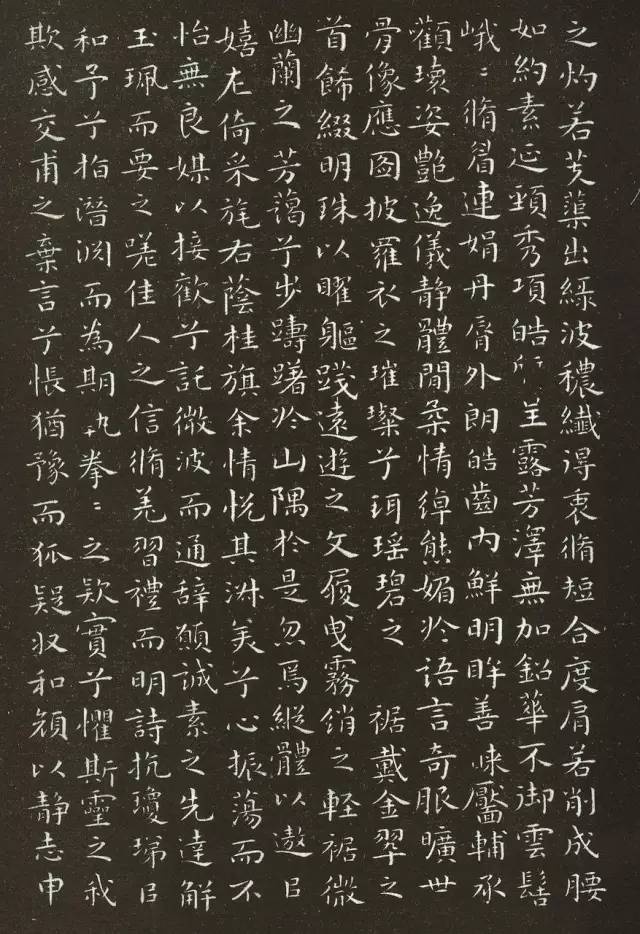 之灼若芙蕖出綠波穠纖得衷脩短合度肩若削成腰
如約素延頸秀項皓呈露芳澤無加鉛華不御雲髻
峨〻脩眉連娟丹脣外朗皓齒內鮮明眸善睞靨輔承
顴瓌姿艷逸儀靜體閒柔情綽態媚於語言奇服曠世
骨像應圖披羅衣之璀璨兮珥瑤碧之裾戴金翠之
首餙綴明珠以曜軀踐遠遊之文履曳霧綃之輕裾微
幽蘭之芳藹兮步躊躇於山隅於是忽焉縱體以遨㠯
嬉左倚采旄右蔭桂旗余情悅其淑美兮心振蕩而不
怡無良媒以接歡兮託微波而通辭願誠素之先達解
玉珮而要之嗟佳人之信脩羌習禮而明詩抗瓊珶㠯
和予兮指潛淵而為期執拳〻之欵實兮懼斯靈之我
欺感交甫之棄言兮悵猶豫而狐疑収和顏以靜志申